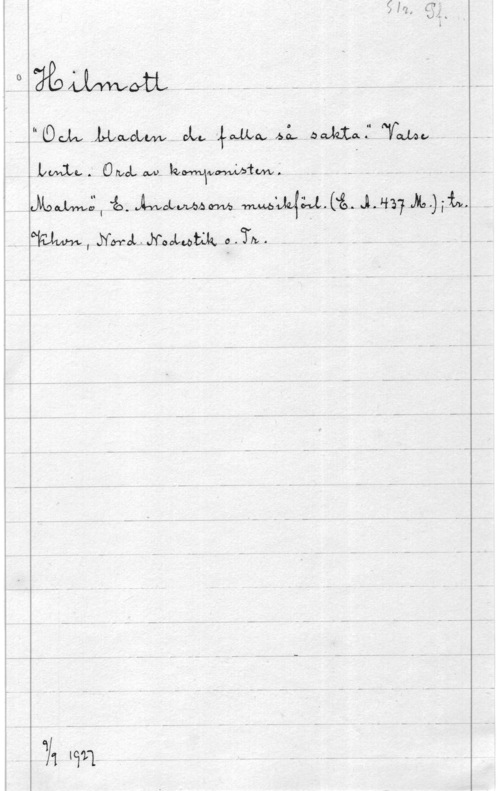 S12. Sf.
Hilmott
"Och bladen de falla så sakta." Valse
lente. Ord av komponisten.
Malmö, E. Anderssons musikförl. (E. A. 437 M.); tr.
Khvn, Nord. Nodestik o. Tr.
9/9 1927